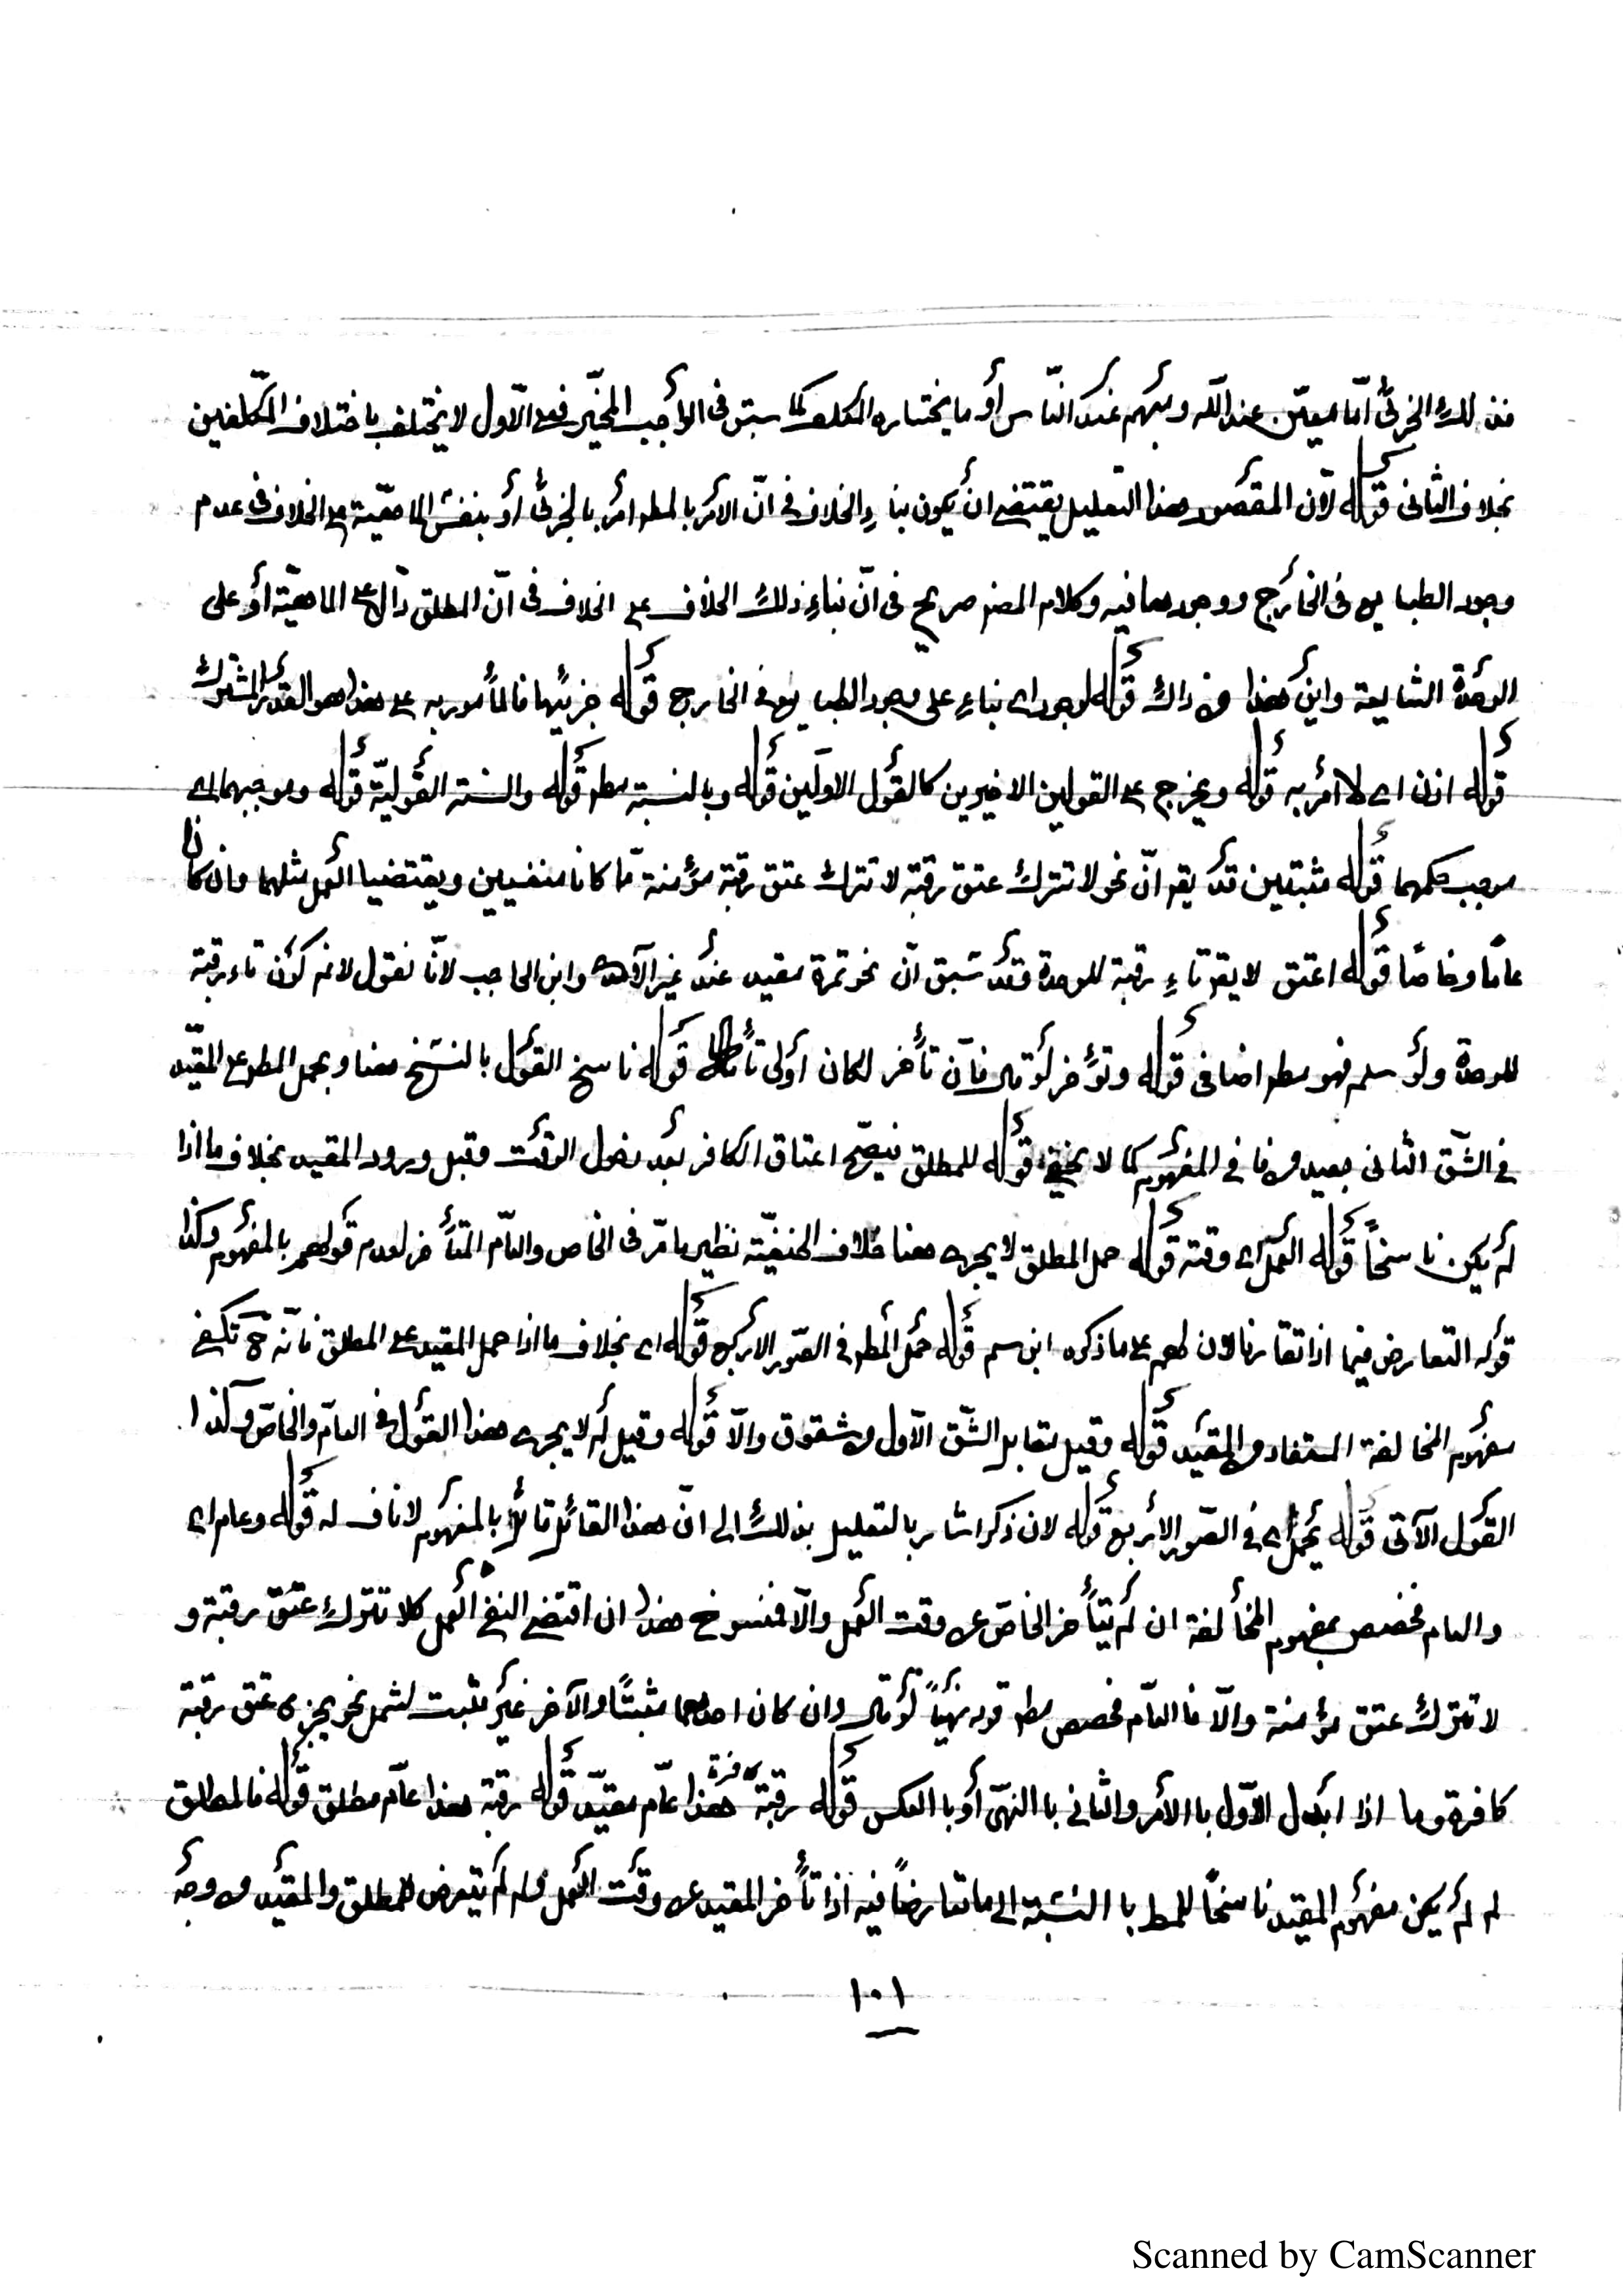 فذلك الجزئى امّا معيّن عند الله ومبهم عند النّاس أو ما يختاره المكلف كما سبق فى الواجب المخيّر فعلى الاّول لا يختلف باختلاف المكلّفين
بخلاف الثانى قوله لان المقصود هذا التعليل يقتضى ان يكون بناء الخلاف فى انّ الامر بالمط امر بالجزئى أو بنفس الماهيّة على الخلاف فى عدم
وجود الطبايع فى الخارج ووجودها فيه وكلام المصنف صريح فى انّ بناء ذلك الخلاف على الخلاف فى انّ المطلق دالّ على الماهيّة أو على
الوحدة الشايعة واين هذا من ذاك قوله لوجود اى بناء على وجود الطبايع فى الخارج قوله جزئيّها فالمأمور به على هذا هو القدر المشترك
قوله اذن اى لا امر به قوله ويخرج على القولين الاخيرين كالقول الاولين قوله وبالنسبة مط قوله والسنة القوليّة قوله وموجبهما اى
موجب حكمهما قوله مثبتين قد يقه انّ نحو لا تترك عتق رقبة لا تترك عتق رقبة مؤمنة مّا كانا منفيين ويقتضيا العمل مثلهما وان كان
عامًا وخاصًا قوله اعتق لا يقه تاء رقبة للوحدة فقد سبق انّ نحو تمرة مقيد عند غير الآمدى وابن الحاجب لانّا نقول لانم كون تاء رقبة
للوحدة ولو سلم فهو مط اضافى قوله وتؤخر لو قال فان تأخر لكان أولى قوله ناسخ القول بالنسخ هنا وبحمل المط على المقيّد
فى الشّق الثانى بعيد من نافى المفهوم كما لا يخفى قوله للمطلق فيصّح اعتاق الكافر بعد دخول الوقت وقبل ورود المقيد بخلاف ما اذا
لم يكن ناسخًا قوله العمل اى وقته قوله حمل المطلق لا يجرى هنا خلاف الحنفيّة نظير ما مرّ فى الخاص والعامّ المتأخر لعدم قولهم بالمفهوم وكذا
قوله التعارض فيما اذا تقارنا لهم على ما ذكره ابن سم قوله حمل المط فى الصّور الاربع قوله اى بخلاف ما اذا حمل المقيد على المطلق فانّه ح تكفى
مفهوم المخالفة المستفاد من المقيد قوله وقيل مقابل الشّق الاّول من شقوق والاّ قوله وقيل اه لا يجرى هذا القول فى العامّ والخاصّ وكذا
القول الآتى قوله يحمل اى فى الصّور الاربع قوله لان ذكر اشار بالتعليل بذلك الى انّ هذا القائل قائل بالمفهوم لا ناف له قوله وعام اى
والعام مخصص بمفهوم المخالفة ان لم يتأخر الخاصّ عن وقت العمل والاّ فمنسوخ هذا ان اقتضى النفى العمل كلا تترك عتق رقبة و
لا تترك عتق مؤمنة والاّ فالعامّ مخصص مط قوله نهيًا لو قال وان كان احدهما مثبتًا والآخر غير مثبت لشمل نحو يجزى عتق رقبة
كافرة وما اذا ابدل الاّول باالأمر والثانى باالنهى أو باالعكس قوله رقبة كافرة هذا عامّ مقيّد قوله رقبة هذا عامّ مطلق قوله فالمطلق
لم لم يكن مفهوم المقيد ناسخًا للمط باالنسبة الى ما تعارضًا فيه اذا تأخر المقيد عن وقت العمل ولم لم يتعرض للمطلق والمقيد من وجه
١٠١
Scanned by CamScanner